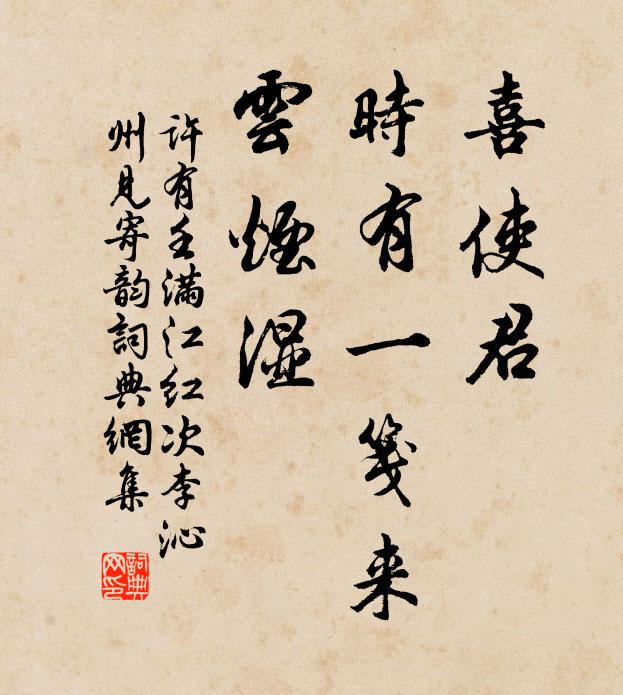 喜使君
時有一箋来
雲煙濕
許有壬滿江红次李沁
州見寄韵詞典網集
詞典
网印